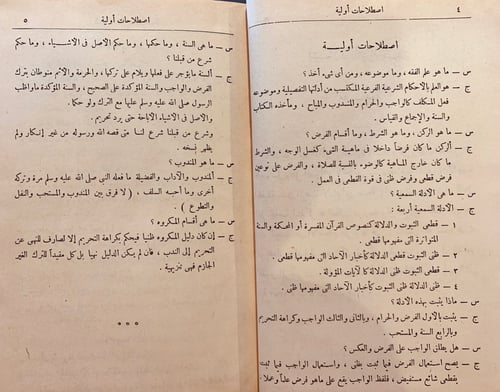 ٤ اصطلاحات أولية
اصطلاحات أوليـــة
س — ما هو علم الفقه ، وما موضوعه ، ومن أى شىء أخذ ؟
ج — هو العلم بالأحكام الشرعية الفرعية المكتسب من أدلتها التفصيلية وموضوعه
فعل المكلف كالواجب والحرام والمندوب والمباح ، ومأخذه الكتاب
والسنة والإجماع والقياس .
س — ما هو الركن ، وما هو الشرط ، وما أقسام الفرض ؟
ج — الركن ما كان فرضاً داخلا فى ماهية الشىء كغسل الوجه ، والشرط
ما كان خارج الماهية كالوضوء بالنسبة للصلاة ، والفرض على نوعين
فرض قطعى وفرض ظنى فى قوة القطعى فى العمل .
س — ما هى الأدلة السمعية ؟
ج — الأدلة السمعية أربعة :
١ — قطعى الثبوت والدلالة كنصوص القرآن المفسرة أو المحكمة والسنة
المتواترة التى مفهومها قطعى .
٢ — ظنى الثبوت قطعى الدلالة كأخبار الآحاد التى مفهومها قطعى .
٣ — قطعى الثبوت ظنى الدلالة كالآيات المؤولة .
٤ — ظنى الثبوت والدلالة كأخبار الآحاد التى مفهومها ظنى .
س — ماذا يثبت بهذه الأدلة ؟
ج — يثبت بالأول الفرض والحرام ، وبالثانى والثالث الواجب وكراهة التحريم
وبالرابع السنة والمستحب .
س — هل يطلق الواجب على الفرض والعكس ؟
ج — يصح استعمال الفرض فيما ثبت بظنى ، واستعمال الواجب فيما ثبت
بقطعى شائع مستفيض ، فلفظ الواجب يقع على ما هو فرض علماً وعملا
اصطلاحات أولية ٥
س — ما هى السنة ، وما حكمها ، وما حكم الأصل فى الأشياء ، وما حكم
شرع من قبلنا ؟
ج — السنة ما يؤجر على فعلها ويلام على تركها ، والحرمة والإثم منوطان بترك
الفرض والواجب والسنة المؤكدة على الصحيح ، والسنة المؤكدة ما واظب
الرسول صلى الله عليه وسلم عليها مع الترك ولو حكما .
والأصل فى الأشياء الإباحة حتى يرد تحريم .
وشرع من قبلنا شرع لنا متى قصه الله ورسوله من غير إنكار ولم
يظهر نسخه .
س — ما هو المندوب ؟
ج — المندوب والآداب والفضيلة ما فعله النبى صلى الله عليه وسلم مرة وتركه
أخرى وما أحبه السلف ، ( لا فرق بين المندوب والمستحب والنفل
والتطوع ) .
س — ما هى أقسام المكروه ؟
ج — إن كان دليل المكروه ظنيا فيحكم بكراهة التحريم إلا لصارف للنهى عن
التحريم إلى الندب ، فإن لم يكن الدليل نهيا بل كل مفيداً للترك الغير
الجازم فهى تنزيهية .
* * *